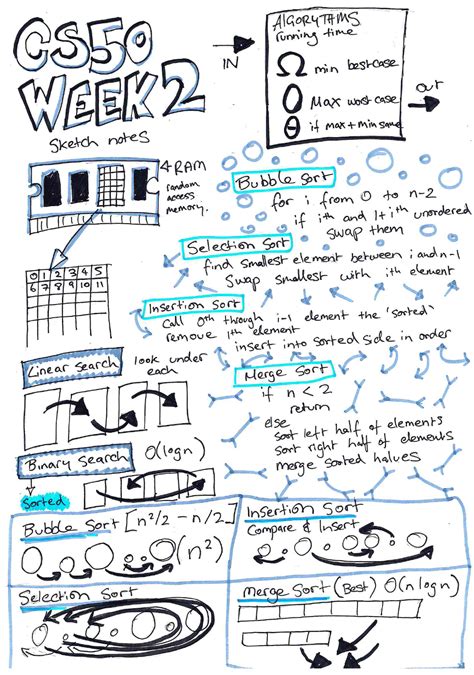 CS50
WEEK 2
Sketch notes
IN
ALGORYTHMS
running time
Ω min best case
O Max worst case
Θ if max + min same
OUT
RAM
random
access
memory.
0 1 2 3 4 5
6 7 8 9 10 11
Bubble Sort
for i from 0 to n-2
if ith and 1+ith unordered
swap them
Selection Sort
find smallest element between i and n-1
Swap smallest with ith element
Insertion Sort
Call 0th through i-1 element the 'sorted'
remove ith element
insert into sorted side in order
Linear search
look under
each
Merge Sort
if n < 2
return
else
sort left half of elements
sort right half of elements
merge sorted halves
Binary search
O(log n)
Sorted
Bubble Sort [n²/2 - n/2]
(n²)
Insertion Sort
Compare & Insert
Selection Sort
Merge Sort (Best) O(n log n)